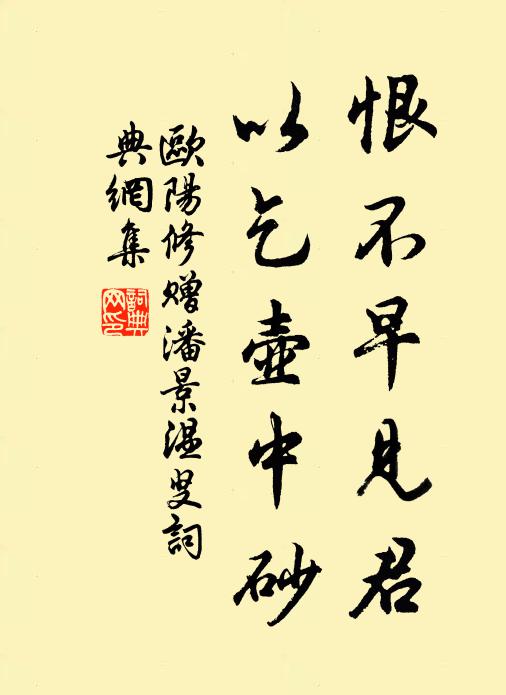 恨不早見君
以乞壺中砂
歐陽修贈潘景温叟詞
典網集
詞典網印